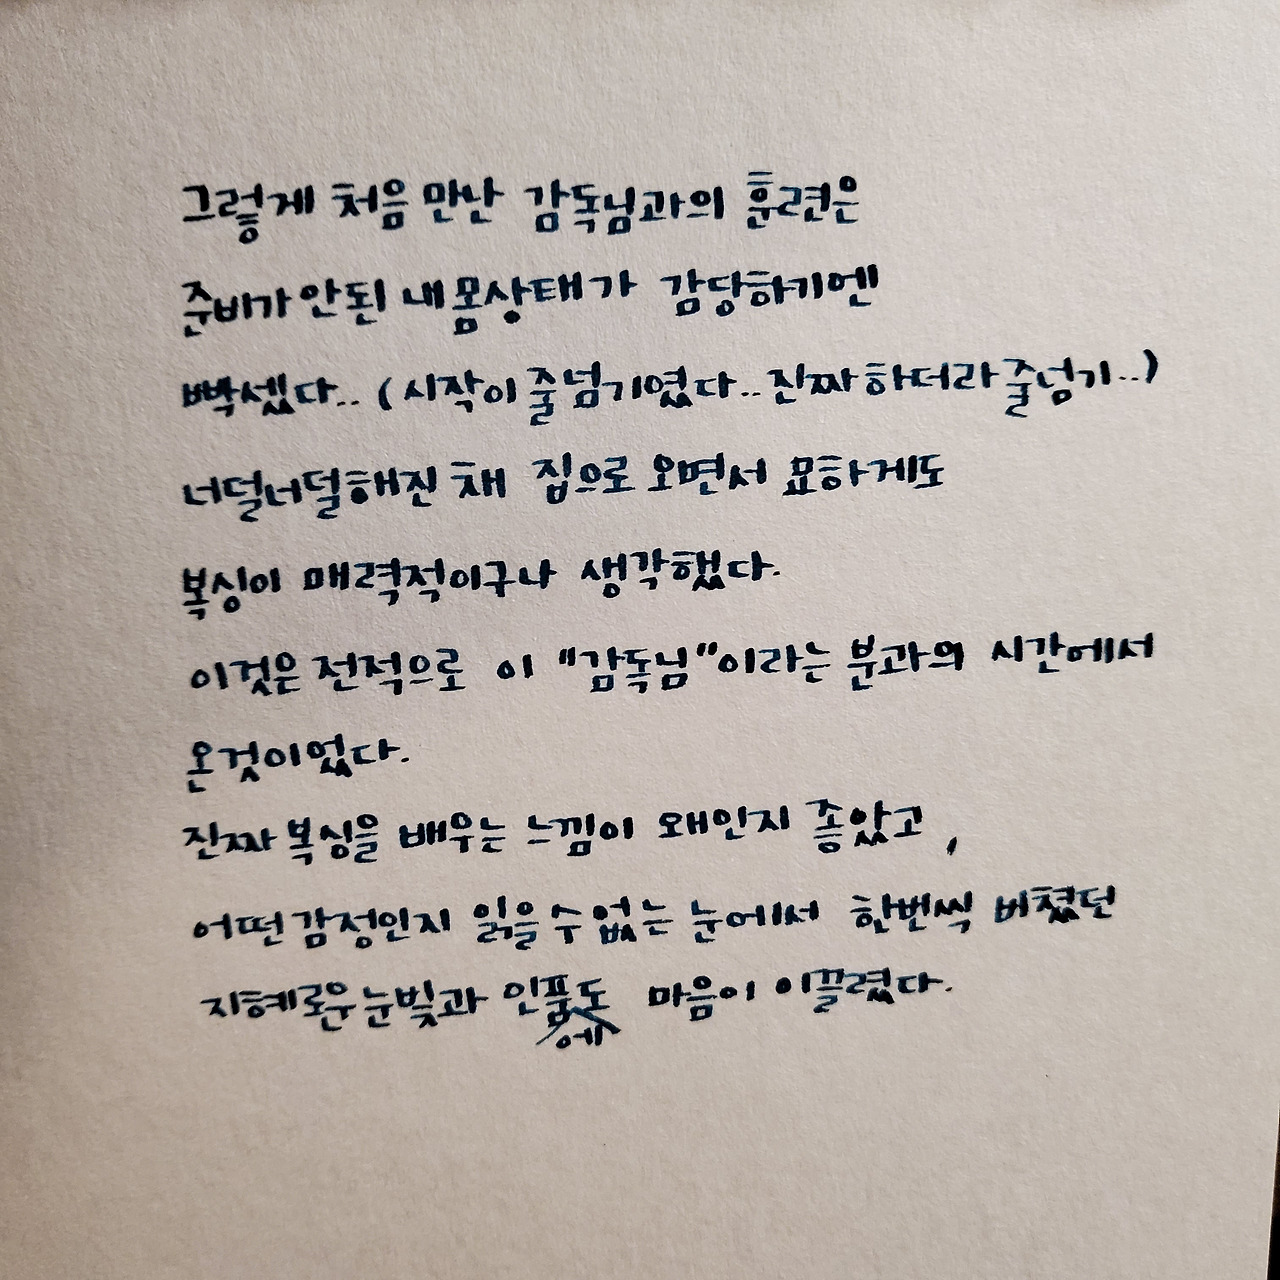 그렇게 처음 만난 감독님과의 훈련은
준비가 안된 내 몸상태가 감당하기엔
빡셌다.. (시작이 줄넘기였다.. 진짜 하더라 줄넘기..)
너덜너덜해진 채 집으로 오면서 묘하게도
복싱이 매력적이구나 생각했다.
이것은 전적으로 이 "감독님"이라는 분과의 시간에서
온것이었다.
진짜 복싱을 배우는 느낌이 왜인지 좋았고,
어떤 감정인지 읽을 수 없는 눈에서 한번씩 비쳤던
지혜로운 눈빛과 인품도 마음이 이끌렸다.
에